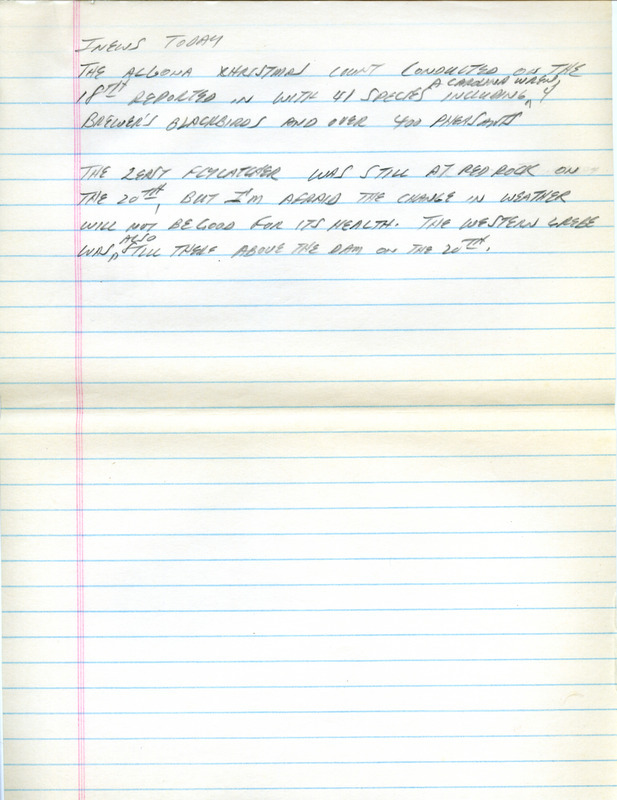 INEWS TODAY
THE ALGONA XHRISTMAS COUNT CONDUCTED ON THE
18TH REPORTED IN WITH 41 SPECIES INCLUDING A CAROLINA WREN, 4
BREWER'S BLACKBIRDS AND OVER 400 PHEASANTS
THE LEAST FLYCATCHER WAS STILL AT RED ROCK ON
THE 20TH, BUT I'M AFRAID THE CHANGE IN WEATHER
WILL NOT BE GOOD FOR ITS HEALTH. THE WESTERN GREBE
WAS ALSO STILL THERE ABOVE THE DAM ON THE 20TH.